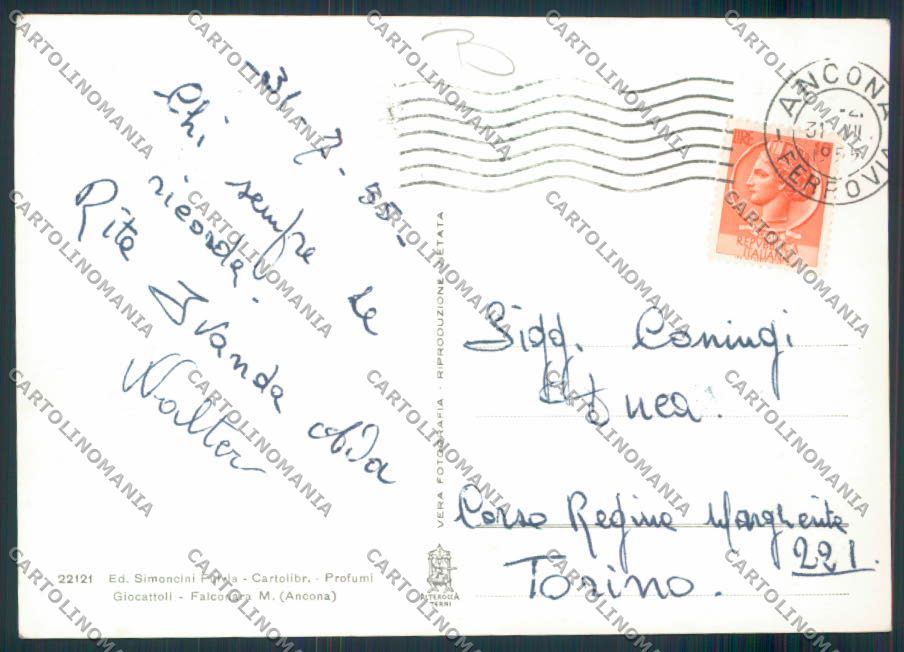 B
-31-7-55-
Chi sempre le
ricorda.
Rita Ivanda Ada
Walter
LIRE
REPUBBLICA
ITALIANA
ANCONA
31 VII
FERROVIA
Sigg. Coningi
Duca.
Corso Regina Margherita
221.
Torino.
VERA FOTOGRAFIA - RIPRODUZIONE VIETATA
22121 Ed. Simoncini - Cartolibr. - Profumi
Giocattoli - Falconara M. (Ancona)
ALTEROCCA
TERNI
CARTOLINOMANIA